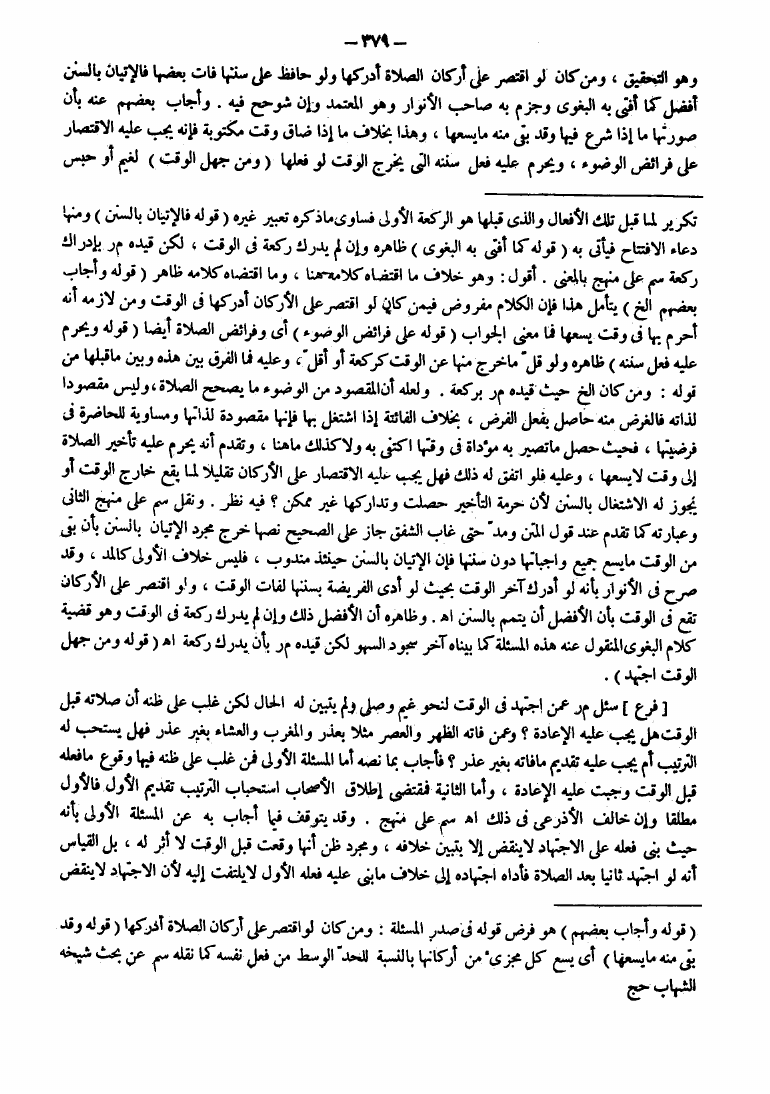 – ٣٧٩ –
وهو التحقيق ، ومن كان لو اقتصر على أركان الصلاة أدركها ولو حافظ على سننها فات بعضها فالإتيان بالسنن
أفضل كما أفتى به البغوى وجزم به صاحب الأنوار وهو المعتمد وإن شوحح فيه . وأجاب بعضهم عنه بأن
صورتها ما إذا شرع فيها وقد بقى منه مايسعها ، وهذا بخلاف ما إذا ضاق وقت مكتوبة فإنه يجب عليه الاقتصار
على فرائض الوضوء ، ويحرم عليه فعل سننه التى يخرج الوقت لو فعلها ( ومن جهل الوقت ) لغيم أو حبس
تكرير لما قبل تلك الأفعال والذى قبلها هو الركعة الأولى فساوى ماذكره تعبير غيره ( قوله فالإتيان بالسنن ) ومنها
دعاء الافتتاح فيأتى به ( قوله كما أفتى به البغوى ) ظاهره وإن لم يدرك ركعة فى الوقت ، لكن قيده مر بإدراك
ركعة سم على منهج بالمعنى . أقول : وهو خلاف ما اقتضاه كلامه هنا ، وما اقتضاه كلامه ظاهر ( قوله وأجاب
بعضهم الخ ) يتأمل هذا فإن الكلام مفروض فيمن كان لو اقتصر على الأركان أدركها فى الوقت ومن لازمه أنه
أحرم بها فى وقت يسعها فما معنى الجواب ( قوله على فرائض الوضوء ) أى وفرائض الصلاة أيضا ( قوله ويحرم
عليه فعل سننه ) ظاهره ولو قلّ ماخرج منها عن الوقت كركعة أو أقل ، وعليه فما الفرق بين هذه وبين ماقبلها من
قوله : ومن كان الخ حيث قيده مر بركعة . ولعله أن المقصود من الوضوء ما يصحح الصلاة ، وليس مقصودا
لذاته فالغرض منه حاصل بفعل الفرض ، بخلاف الفائتة إذا اشتغل بها فإنها مقصودة لذاتها ومساوية للحاضرة فى
فرضيتها ، فحيث حصل ماتصير به مؤداة فى وقتها اكتفى به ولا كذلك ماهنا ، وتقدم أنه يحرم عليه تأخير الصلاة
إلى وقت لايسعها ، وعليه فلو اتفق له ذلك فهل يجب عليه الاقتصار على الأركان تقليلا لما يقع خارج الوقت أو
يجوز له الاشتغال بالسنن لأن حرمة التأخير حصلت وتداركها غير ممكن ؟ فيه نظر . ونقل سم على منهج الثانى
وعبارته كما تقدم عند قول المتن ومدّ حتى غاب الشفق جاز على الصحيح نصها خرج مجرد الإتيان بالسنن بأن بقى
من الوقت مايسع جميع واجباتها دون سننها فإن الإتيان بالسنن حينئذ مندوب ، فليس خلاف الأولى كالمد ، وقد
صرح فى الأنوار بأنه لو أدرك آخر الوقت بحيث لو أدى الفريضة بسننها لفات الوقت ، ولو اقتصر على الأركان
تقع فى الوقت بأن الأفضل أن يتمم بالسنن اه . وظاهره أن الأفضل ذلك وإن لم يدرك ركعة فى الوقت وهو قضية
كلام البغوى المنقول عنه هذه المسئلة كما بيناه آخر سجود السهو لكن قيده مر بأن يدرك ركعة اه ( قوله ومن جهل
الوقت اجتهد ) .
[ فرع ] سئل مر عمن اجتهد فى الوقت لنحو غيم وصلى ولم يتبين له الحال لكن غلب على ظنه أن صلاته قبل
الوقت هل يجب عليه الإعادة ؟ وعمن فاته الظهر والعصر مثلا بعذر والمغرب والعشاء بغير عذر فهل يستحب له
الترتيب أم يجب عليه تقديم مافاته بغير عذر ؟ فأجاب بما نصه أما المسئلة الأولى فمن غلب على ظنه فيها وقوع مافعله
قبل الوقت وجبت عليه الإعادة ، وأما الثانية فمقتضى إطلاق الأصحاب استحباب الترتيب تقديم الأول فالأول
مطلقا وإن خالف الأذرعى فى ذلك اه سم على منهج . وقد يتوقف فيما أجاب به عن المسئلة الأولى بأنه
حيث بنى فعله على الاجتهاد لاينقض إلا بتبين خلافه ، ومجرد ظن أنها وقعت قبل الوقت لا أثر له ، بل القياس
أنه لو اجتهد ثانيا بعد الصلاة فأداه اجتهاده إلى خلاف مابنى عليه فعله الأول لايلتفت إليه لأن الاجتهاد لاينقض
( قوله وأجاب بعضهم ) هو فرض قوله فى صدر المسئلة : ومن كان لو اقتصر على أركان الصلاة أدركها ( قوله وقد
بقى منه مايسعها ) أى يسع كل مجزئ من أركانها بالنسبة للحدّ الوسط من فعل نفسه كما نقله سم عن بحث شيخه
الشهاب حج